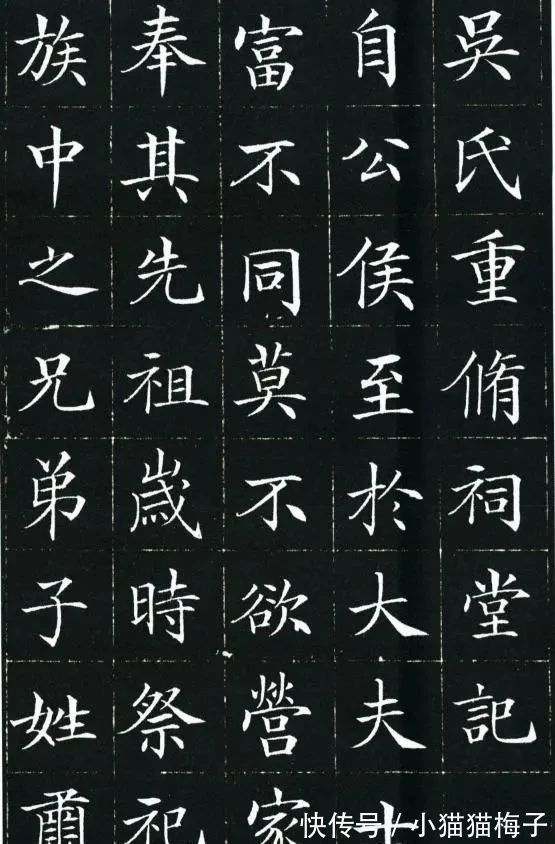 吳氏重脩祠堂記
自公侯至於大夫士
富不同莫不欲營家
奉其先祖歲時祭祀
族中之兄弟子姓
快传号/小猫猫梅子